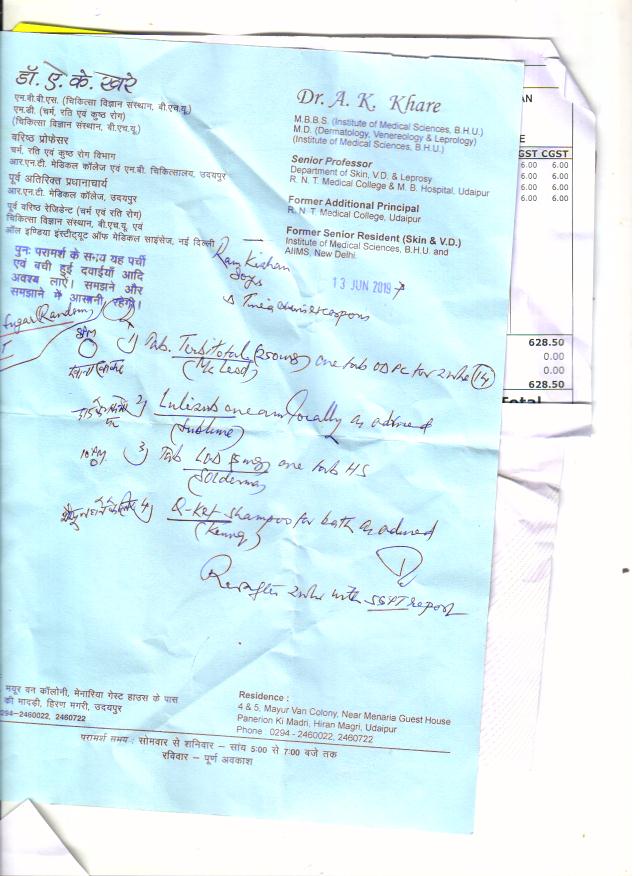 डॉ. ऐ. के. खरे
एम.बी.बी.एस. (चिकित्सा विज्ञान संस्थान, बी.एच.यू.)
एम.डी. (चर्म, रति एवं कुष्ठ रोग)
(चिकित्सा विज्ञान संस्थान, बी.एच.यू.)
वरिष्ठ प्रोफेसर
चर्म, रति एवं कुष्ठ रोग विभाग
आर.एन.टी. मेडिकल कॉलेज एवं एम.बी. चिकित्सालय, उदयपुर
पूर्व अतिरिक्त प्रधानाचार्य
आर.एन.टी. मेडिकल कॉलेज, उदयपुर
पूर्व वरिष्ठ रेजिडेन्ट (चर्म एवं रति रोग)
चिकित्सा विज्ञान संस्थान, बी.एच.यू. एवं
ऑल इण्डिया इंस्टीट्यूट ऑफ मेडिकल साइंसेज, नई दिल्ली
पुनः परामर्श के समय यह पर्ची
एवं बची हुई दवाईयाँ आदि
अवश्य लाऐं। समझने और
समझाने में आसानी रहेगी।
Dr. A. K. Khare
M.B.B.S. (Institute of Medical Sciences, B.H.U.)
M.D. (Dermatology, Venereology & Leprology)
(Institute of Medical Sciences, B.H.U.)
Senior Professor
Department of Skin, V.D. & Leprosy
R. N. T. Medical College & M. B. Hospital, Udaipur
Former Additional Principal
R. N. T. Medical College, Udaipur
Former Senior Resident (Skin & V.D.)
Institute of Medical Sciences, B.H.U. and
AIIMS, New Delhi.
AN
E
GST CGST
6.00 6.00
6.00 6.00
6.00 6.00
6.00 6.00
628.50
0.00
0.00
628.50
Total
Ram Kishan
13 JUN 2019
Sugar (Random)
8PM
1) Tab. (250mg) one tab OD PC for 2 wks (14)
(McLeod)
2) one am locally as advised
10 PM
3) Tab 5mg one tab HS
4) Q-Ket Shampoo for bath as advised
Rev after 2 wks with SGPT report
मयूर वन कॉलोनी, मेनारिया गेस्ट हाउस के पास
की मादड़ी, हिरण मगरी, उदयपुर
294-2460022, 2460722
Residence :
4 & 5, Mayur Van Colony, Near Menaria Guest House
Panerion Ki Madri, Hiran Magri, Udaipur
Phone : 0294 - 2460022, 2460722
परामर्श समय : सोमवार से शनिवार – सांय 5:00 से 7:00 बजे तक
रविवार – पूर्ण अवकाश